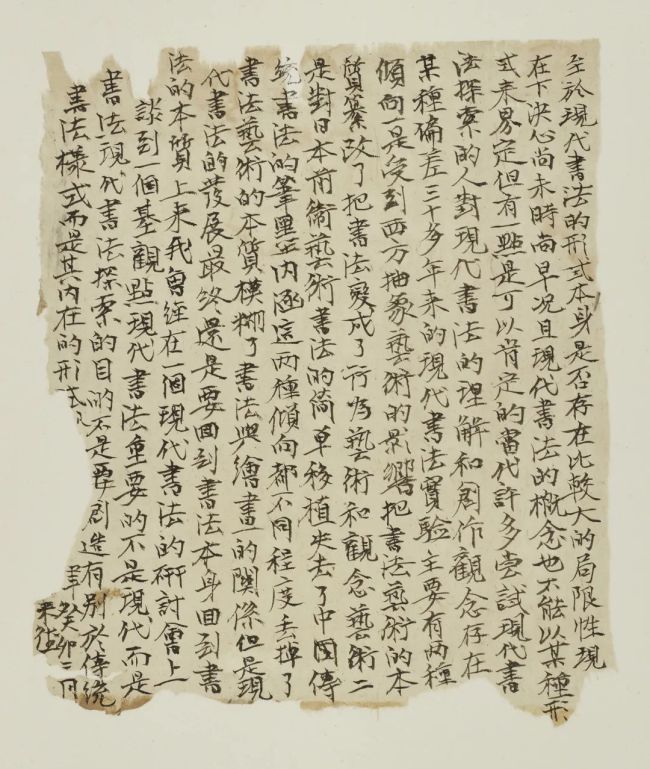 至於現代書法的形式本身是否存在比較大的局限性現
在下決心尚未時尚早况且現代書法的概念也不能以某種形
式來界定但有一點是可以肯定的當代許多尝試現代書
法探索的人對現代書法的理解和創作觀念存在
某種偏差三十多年来的現代書法實驗主要有两種
傾向一是受到西方抽象藝術的影響把書法藝術的本
質篡改了把書法變成了行為藝術和觀念藝術二
是對日本前衛藝術書法的简单移植失去了中國傳
統書法的筆墨内涵這两種傾向都不同程度丢掉了
書法藝術的本質模糊了書法與繪畫的關係但是現
代書法的發展最终還是要回到書法本身回到書
法的本質上来我曾经在一個現代書法的研討會上
談到一個基觀點現代書法重要的不是現代而是
書法現代書法探索的目的不是要創造有别於傳統
書法樣式而是其内在的形式
癸卯二月